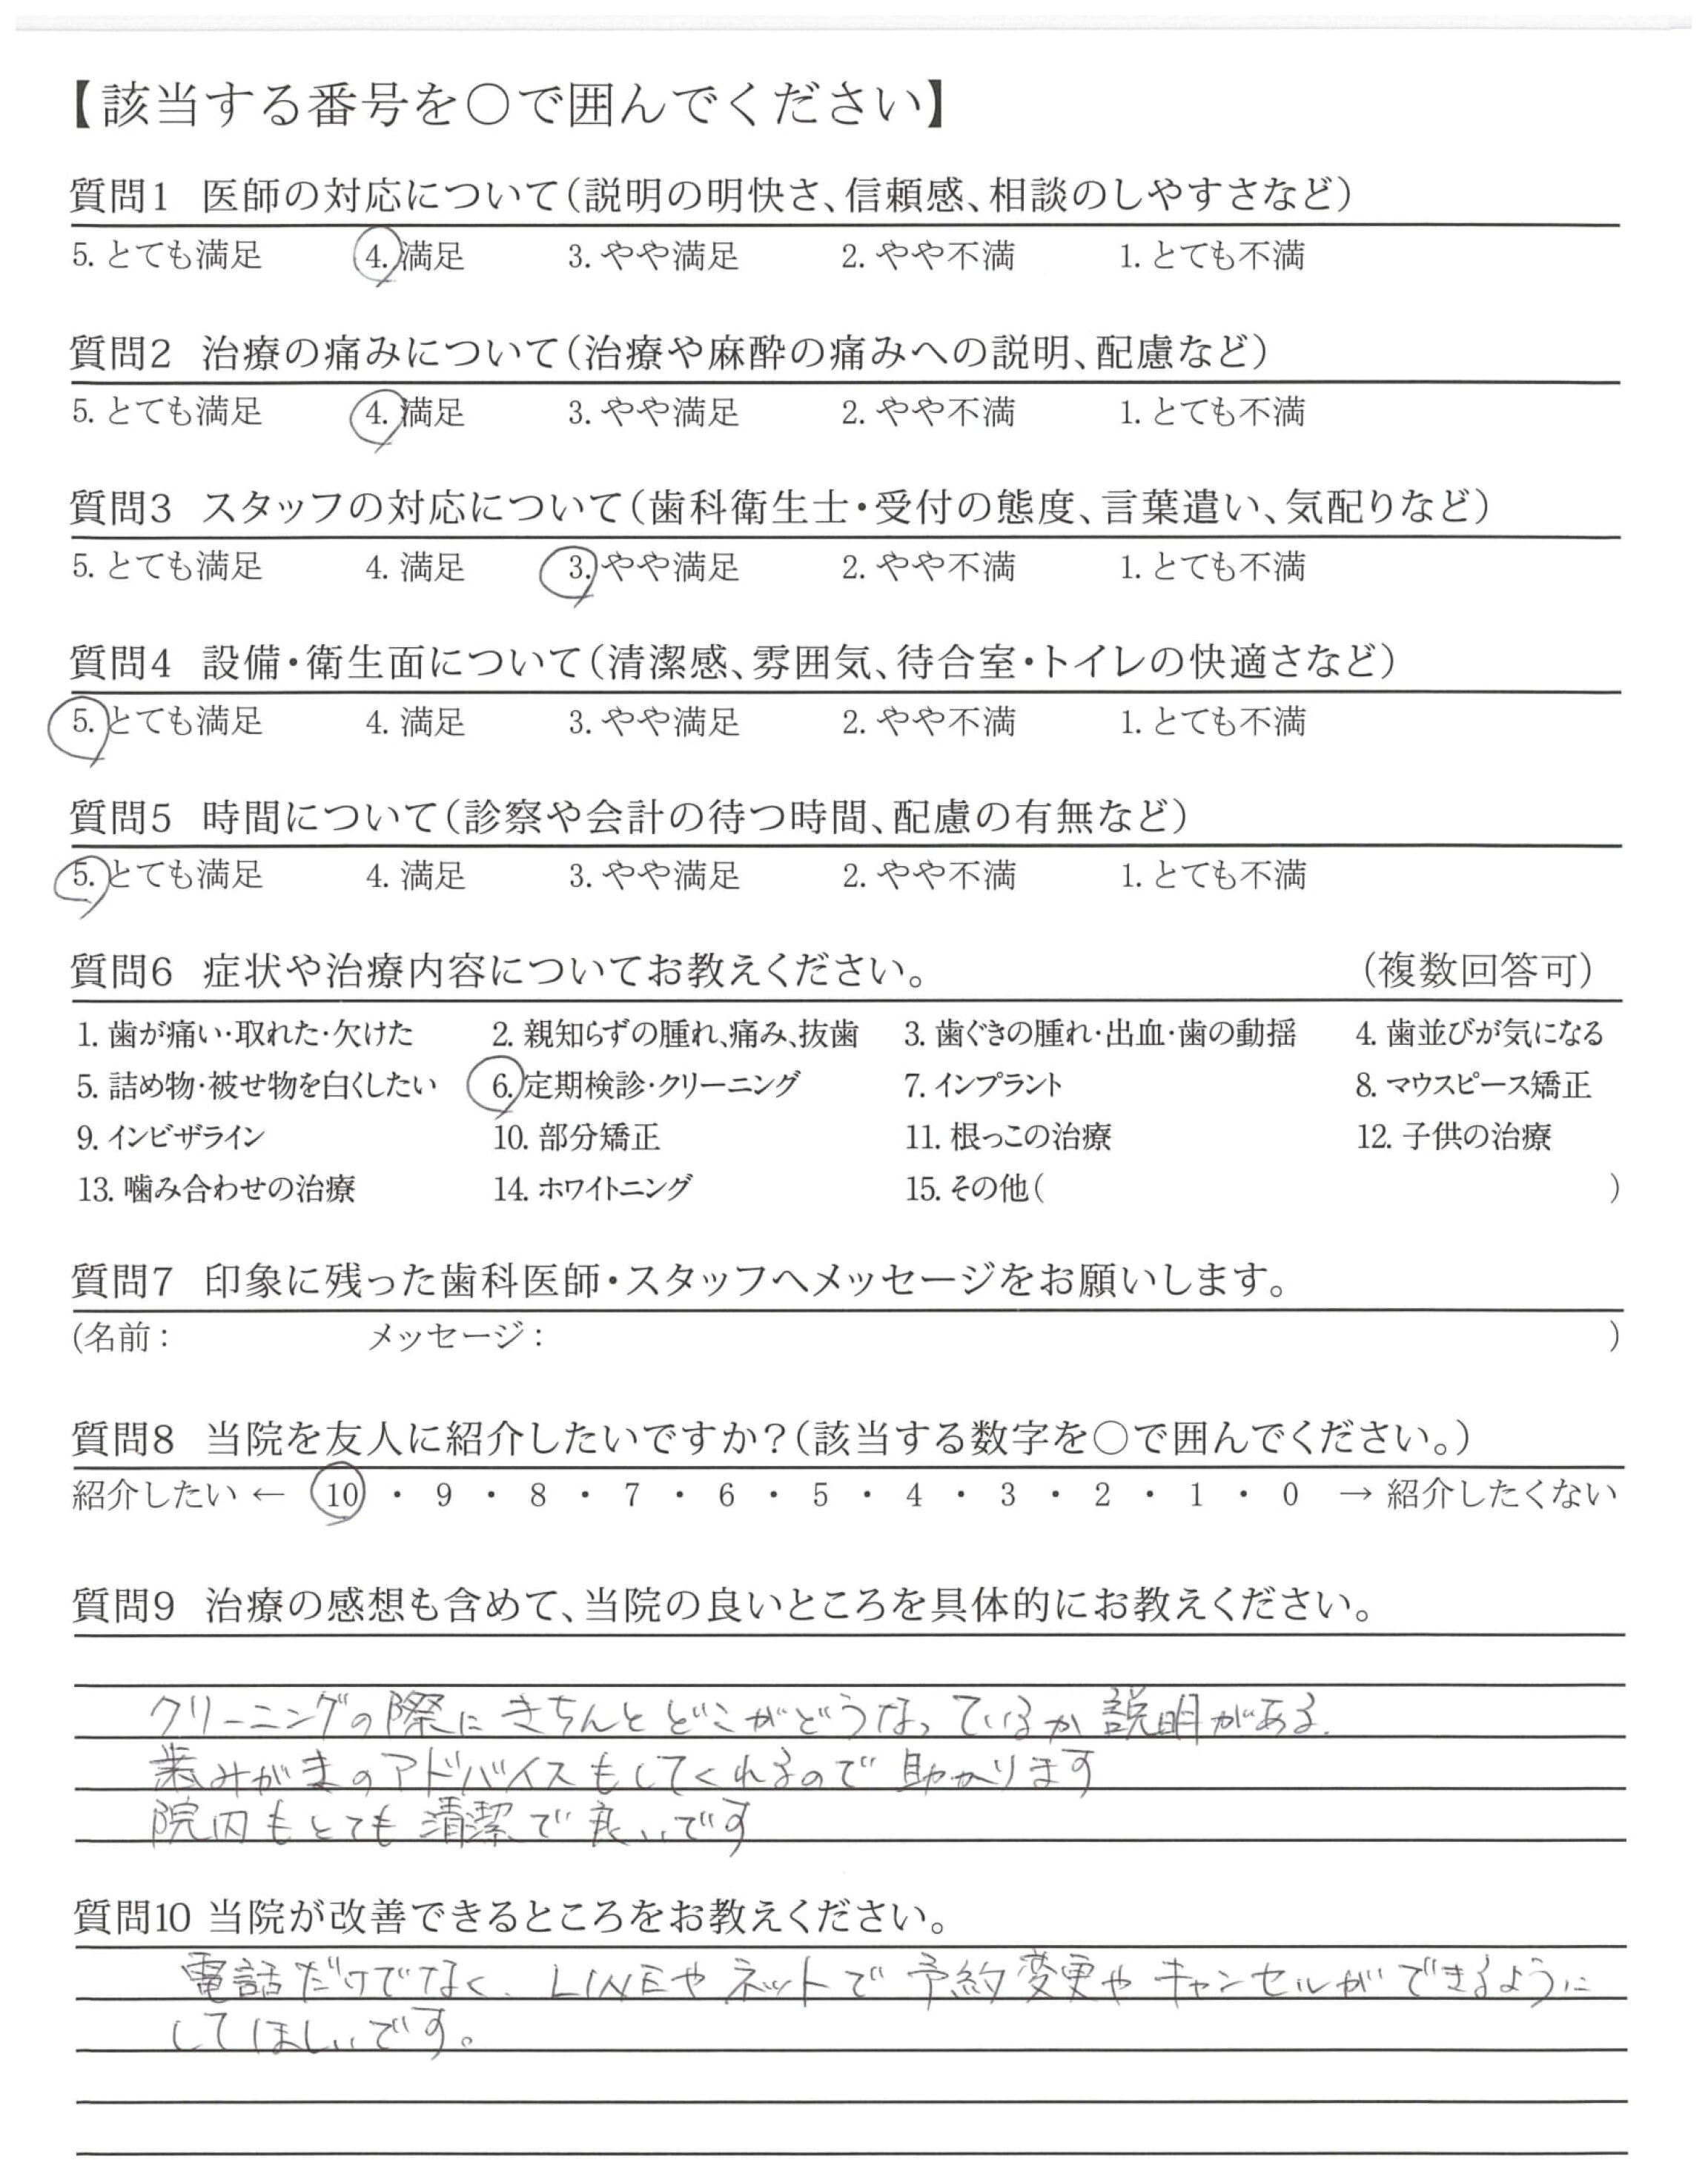 【該当する番号を〇で囲んでください】
質問1 医師の対応について(説明の明快さ、信頼感、相談のしやすさなど)
5. とても満足 4. 満足 3. やや満足 2. やや不満 1. とても不満
質問2 治療の痛みについて(治療や麻酔の痛みへの説明、配慮など)
5. とても満足 4. 満足 3. やや満足 2. やや不満 1. とても不満
質問3 スタッフの対応について(歯科衛生士・受付の態度、言葉遣い、気配りなど)
5. とても満足 4. 満足 3. やや満足 2. やや不満 1. とても不満
質問4 設備・衛生面について(清潔感、雰囲気、待合室・トイレの快適さなど)
5. とても満足 4. 満足 3. やや満足 2. やや不満 1. とても不満
質問5 時間について(診察や会計の待つ時間、配慮の有無など)
5. とても満足 4. 満足 3. やや満足 2. やや不満 1. とても不満
質問6 症状や治療内容についてお教えください。 (複数回答可)
1. 歯が痛い・取れた・欠けた 2. 親知らずの腫れ、痛み、抜歯 3. 歯ぐきの腫れ・出血・歯の動揺 4. 歯並びが気になる
5. 詰め物・被せ物を白くしたい 6. 定期検診・クリーニング 7. インプラント 8. マウスピース矯正
9. インビザライン 10. 部分矯正 11. 根っこの治療 12. 子供の治療
13. 噛み合わせの治療 14. ホワイトニング 15. その他( )
質問7 印象に残った歯科医師・スタッフへメッセージをお願いします。
(名前: メッセージ: )
質問8 当院を友人に紹介したいですか?(該当する数字を〇で囲んでください。)
紹介したい ← 10 ・ 9 ・ 8 ・ 7 ・ 6 ・ 5 ・ 4 ・ 3 ・ 2 ・ 1 ・ 0 → 紹介したくない
質問9 治療の感想も含めて、当院の良いところを具体的にお教えください。
クリーニングの際にきちんとどこがどうなっているか説明がある.
歯みがきのアドバイスもしてくれるので助かります
院内もとても清潔で良いです
質問10 当院が改善できるところをお教えください。
電話だけでなく、LINEやネットで予約変更やキャンセルができるように
してほしいです。